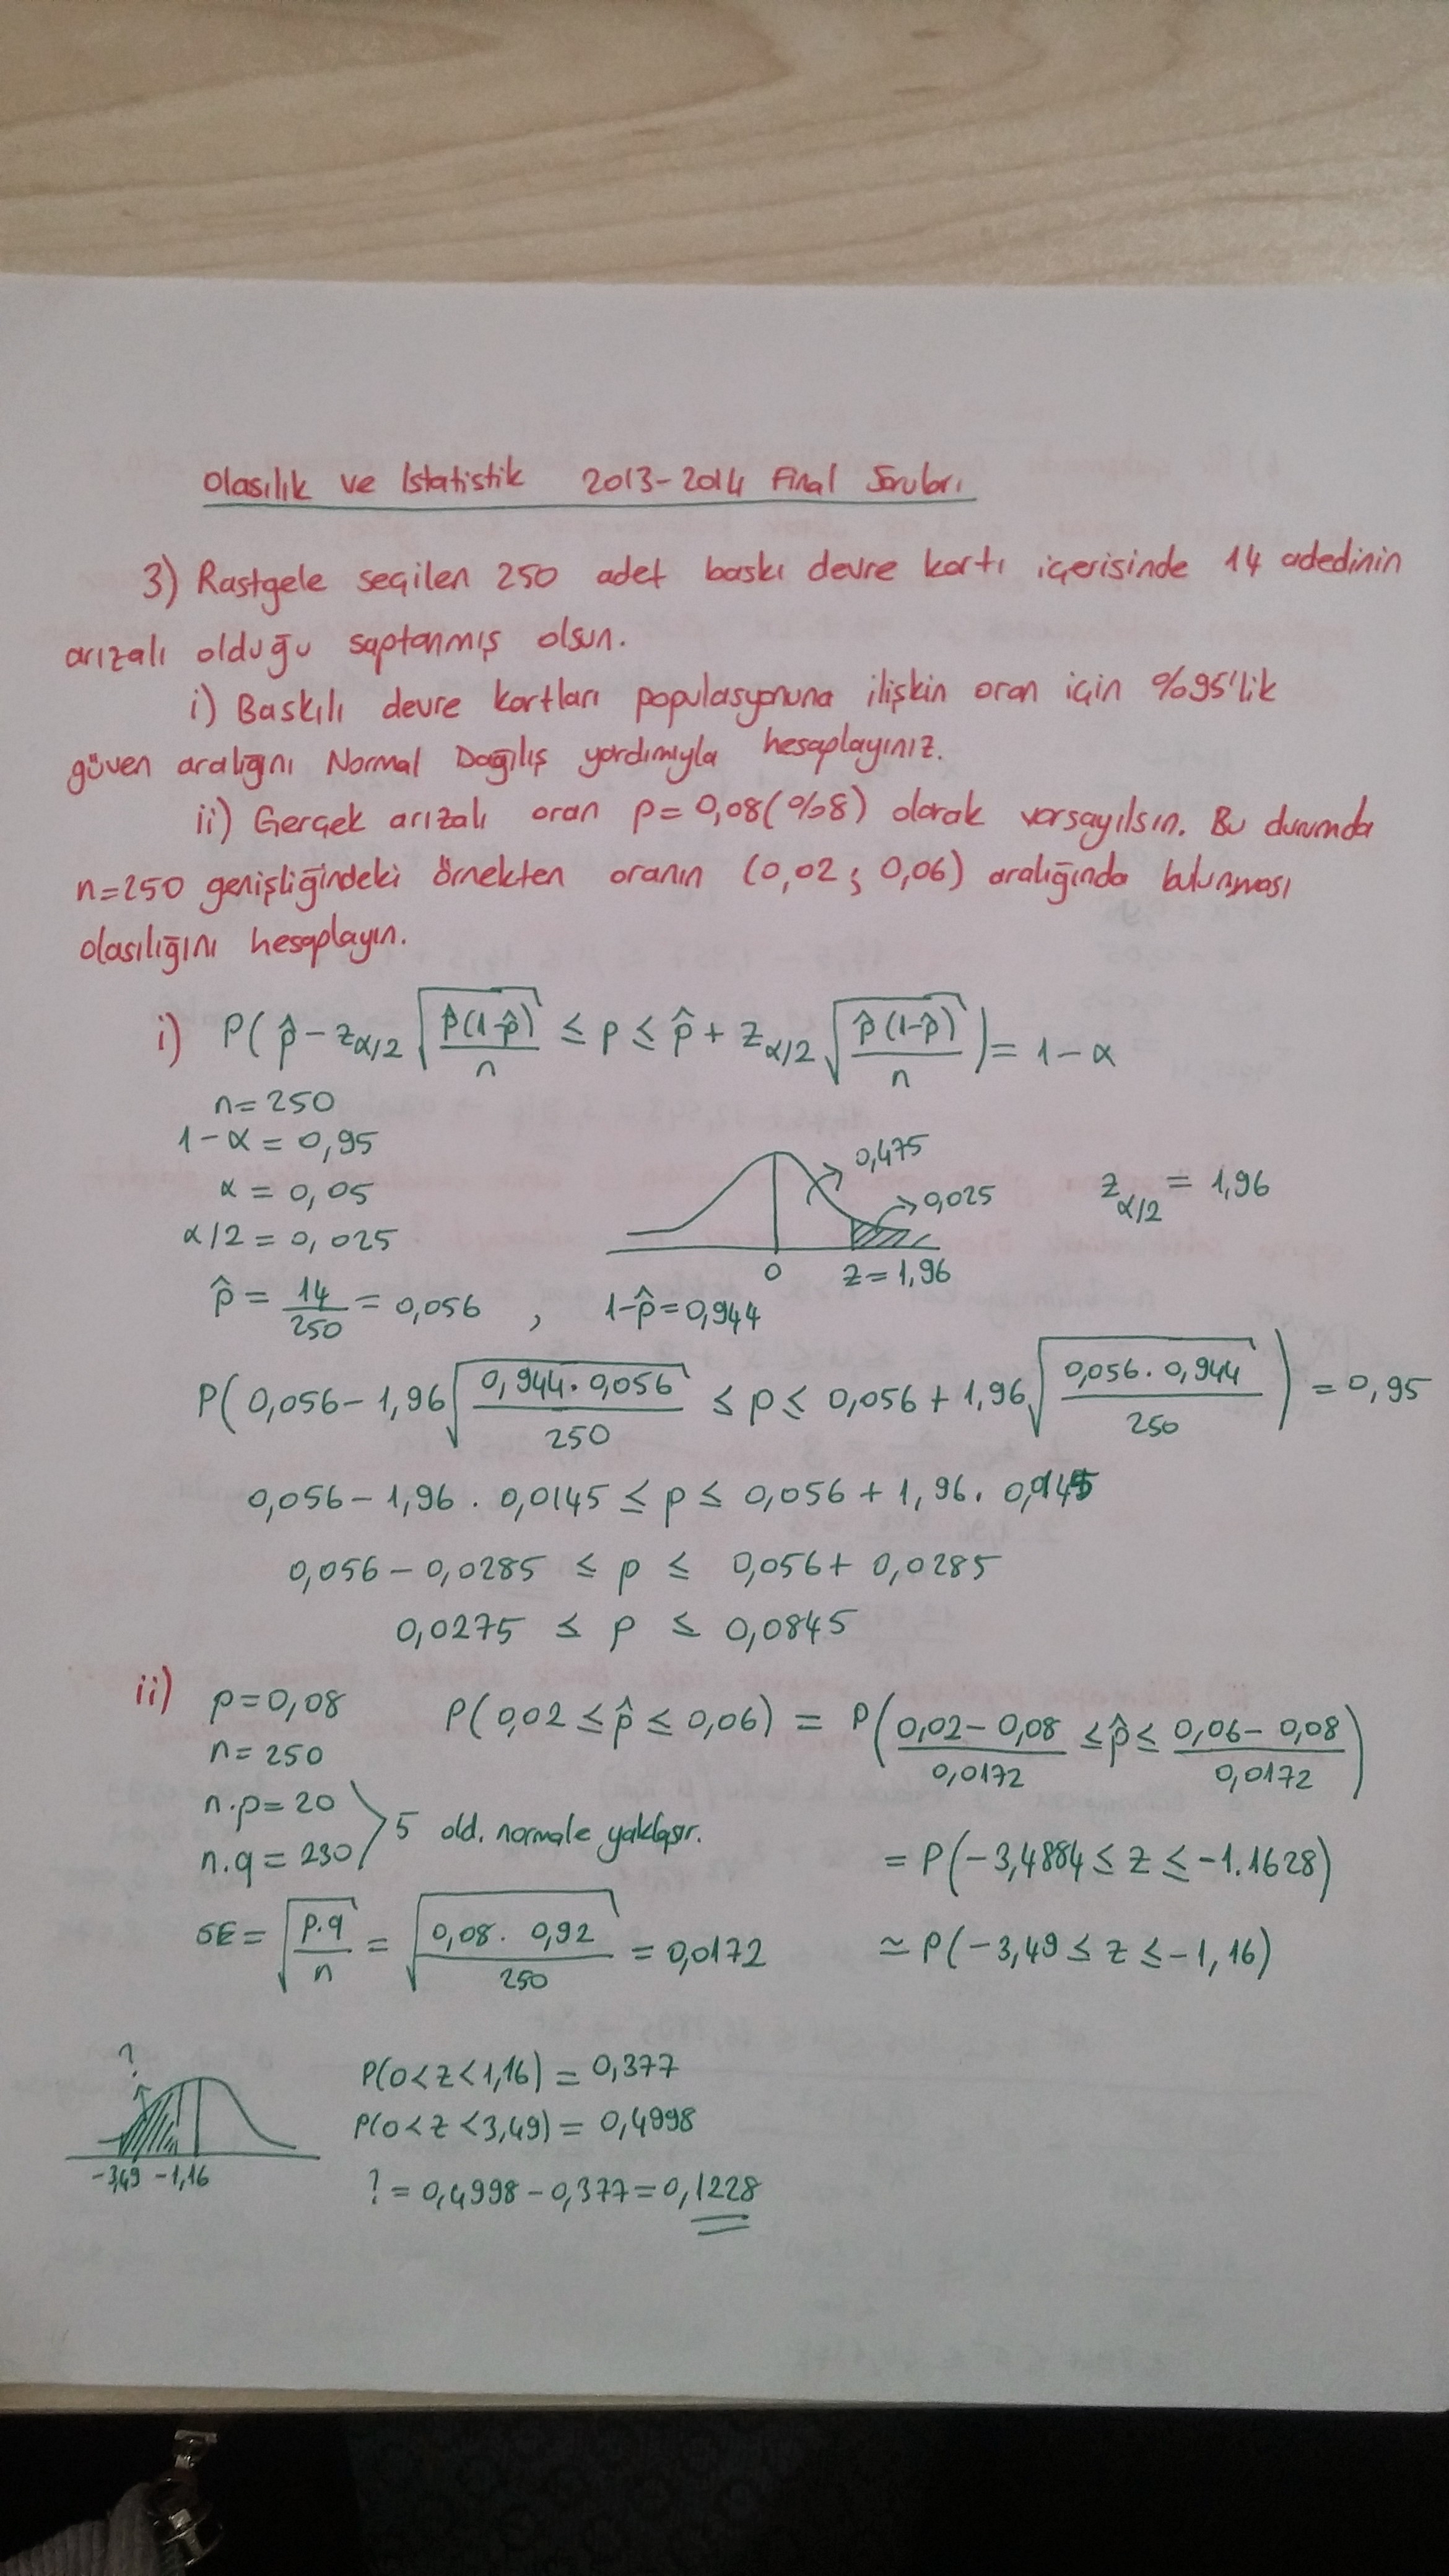 Olasılık ve Istatistik 2013-2014 Final Soruları
3) Rastgele seçilen 250 adet baskı devre kartı içerisinde 14 adedinin
arızalı olduğu saptanmış olsun.
i) Baskılı devre kartları populasyonuna ilişkin oran için %95'lik
güven aralığını Normal Dağılış yardımıyla hesaplayınız.
ii) Gerçek arızalı oran p=0,08(%8) olarak varsayılsın. Bu durumda
n=250 genişliğindeki örnekten oranın (0,02 ; 0,06) aralığında bulunması
olasılığını hesaplayın.
i) P(p̂ - z_α/2 √(p̂(1-p̂)/n) ≤ p ≤ p̂ + z_α/2 √(p̂(1-p̂)/n)) = 1-α
n=250
1-α = 0,95
α = 0,05
α/2 = 0,025
0,475
0,025
0 z=1,96
z_α/2 = 1,96
p̂ = 14/250 = 0,056 , 1-p̂=0,944
P(0,056-1,96 √(0,944.0,056/250) ≤ p ≤ 0,056+1,96 √(0,056.0,944/250)) = 0,95
0,056-1,96 . 0,0145 ≤ p ≤ 0,056+1,96. 0,0145
0,056-0,0285 ≤ p ≤ 0,056+0,0285
0,0275 ≤ p ≤ 0,0845
ii) p=0,08
n=250
n.p=20
n.q=230 > 5 old. normale yaklaşır.
SE = √(p.q/n) = √(0,08. 0,92/250) = 0,0172
P(0,02 ≤ p̂ ≤ 0,06) = P((0,02-0,08)/0,0172 ≤ p̂ ≤ (0,06-0,08)/0,0172)
= P(-3,4884 ≤ z ≤ -1.1628)
≃ P(-3,49 ≤ z ≤ -1,16)
?
-3,49 -1,16
P(0<z<1,16) = 0,377
P(0<z<3,49) = 0,4998
? = 0,4998-0,377=0,1228